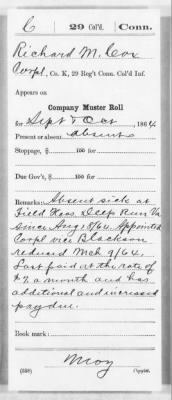 C | 29 Col'd. | Conn.
Richard M. Cox
Corpl, Co. K, 29 Reg't Conn. Col'd Inf.
Appears on
Company Muster Roll
for Sept & Oct, 1864
Present or absent absent
Stoppage, $ 100 for
Due Gov't, $ 100 for
Remarks: Absent sick at
Field Hos. Deep Run Va
since Aug 18/64. Appointed
Corpl vice Blackson
reduced Mch 9/64.
Last paid at the rate of
$7 a month and has
additional and increased
pay due.
Book mark:
(358)
Copyist.